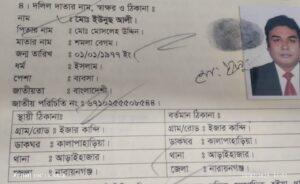 ৪। দলিল দাতার নাম, স্বাক্ষর ও ঠিকানা ঃ
নাম ঃ মোঃ ইউনুছ আলী।
পিতার নাম ঃ মোঃ মোসলেহ উদ্দিন।
মাতার নাম ঃ শমলা বেগম।
জন্ম তারিখ ঃ ০১/০১/১৯৭৭ ইং
ধর্ম ঃ ইসলাম।
পেশা ঃ ব্যবসা।
জাতীয়তা ঃ বাংলাদেশী।
জাতীয় পরিচিতি নং ঃ
স্থায়ী ঠিকানাঃ বর্তমান ঠিকানা ঃ
গ্রাম/রোড ঃ ইজার কান্দি। গ্রাম/রোড ঃ ইজার কান্দি।
ডাকঘর ঃ কালাপাহাড়িয়া। ডাকঘর ঃ কালাপাহাড়িয়া।
থানা ঃ আড়াইহাজার। থানা ঃ আড়াইহাজার।
জেলা ঃ নারায়নগঞ্জ। জেলা ঃ নারায়নগঞ্জ।